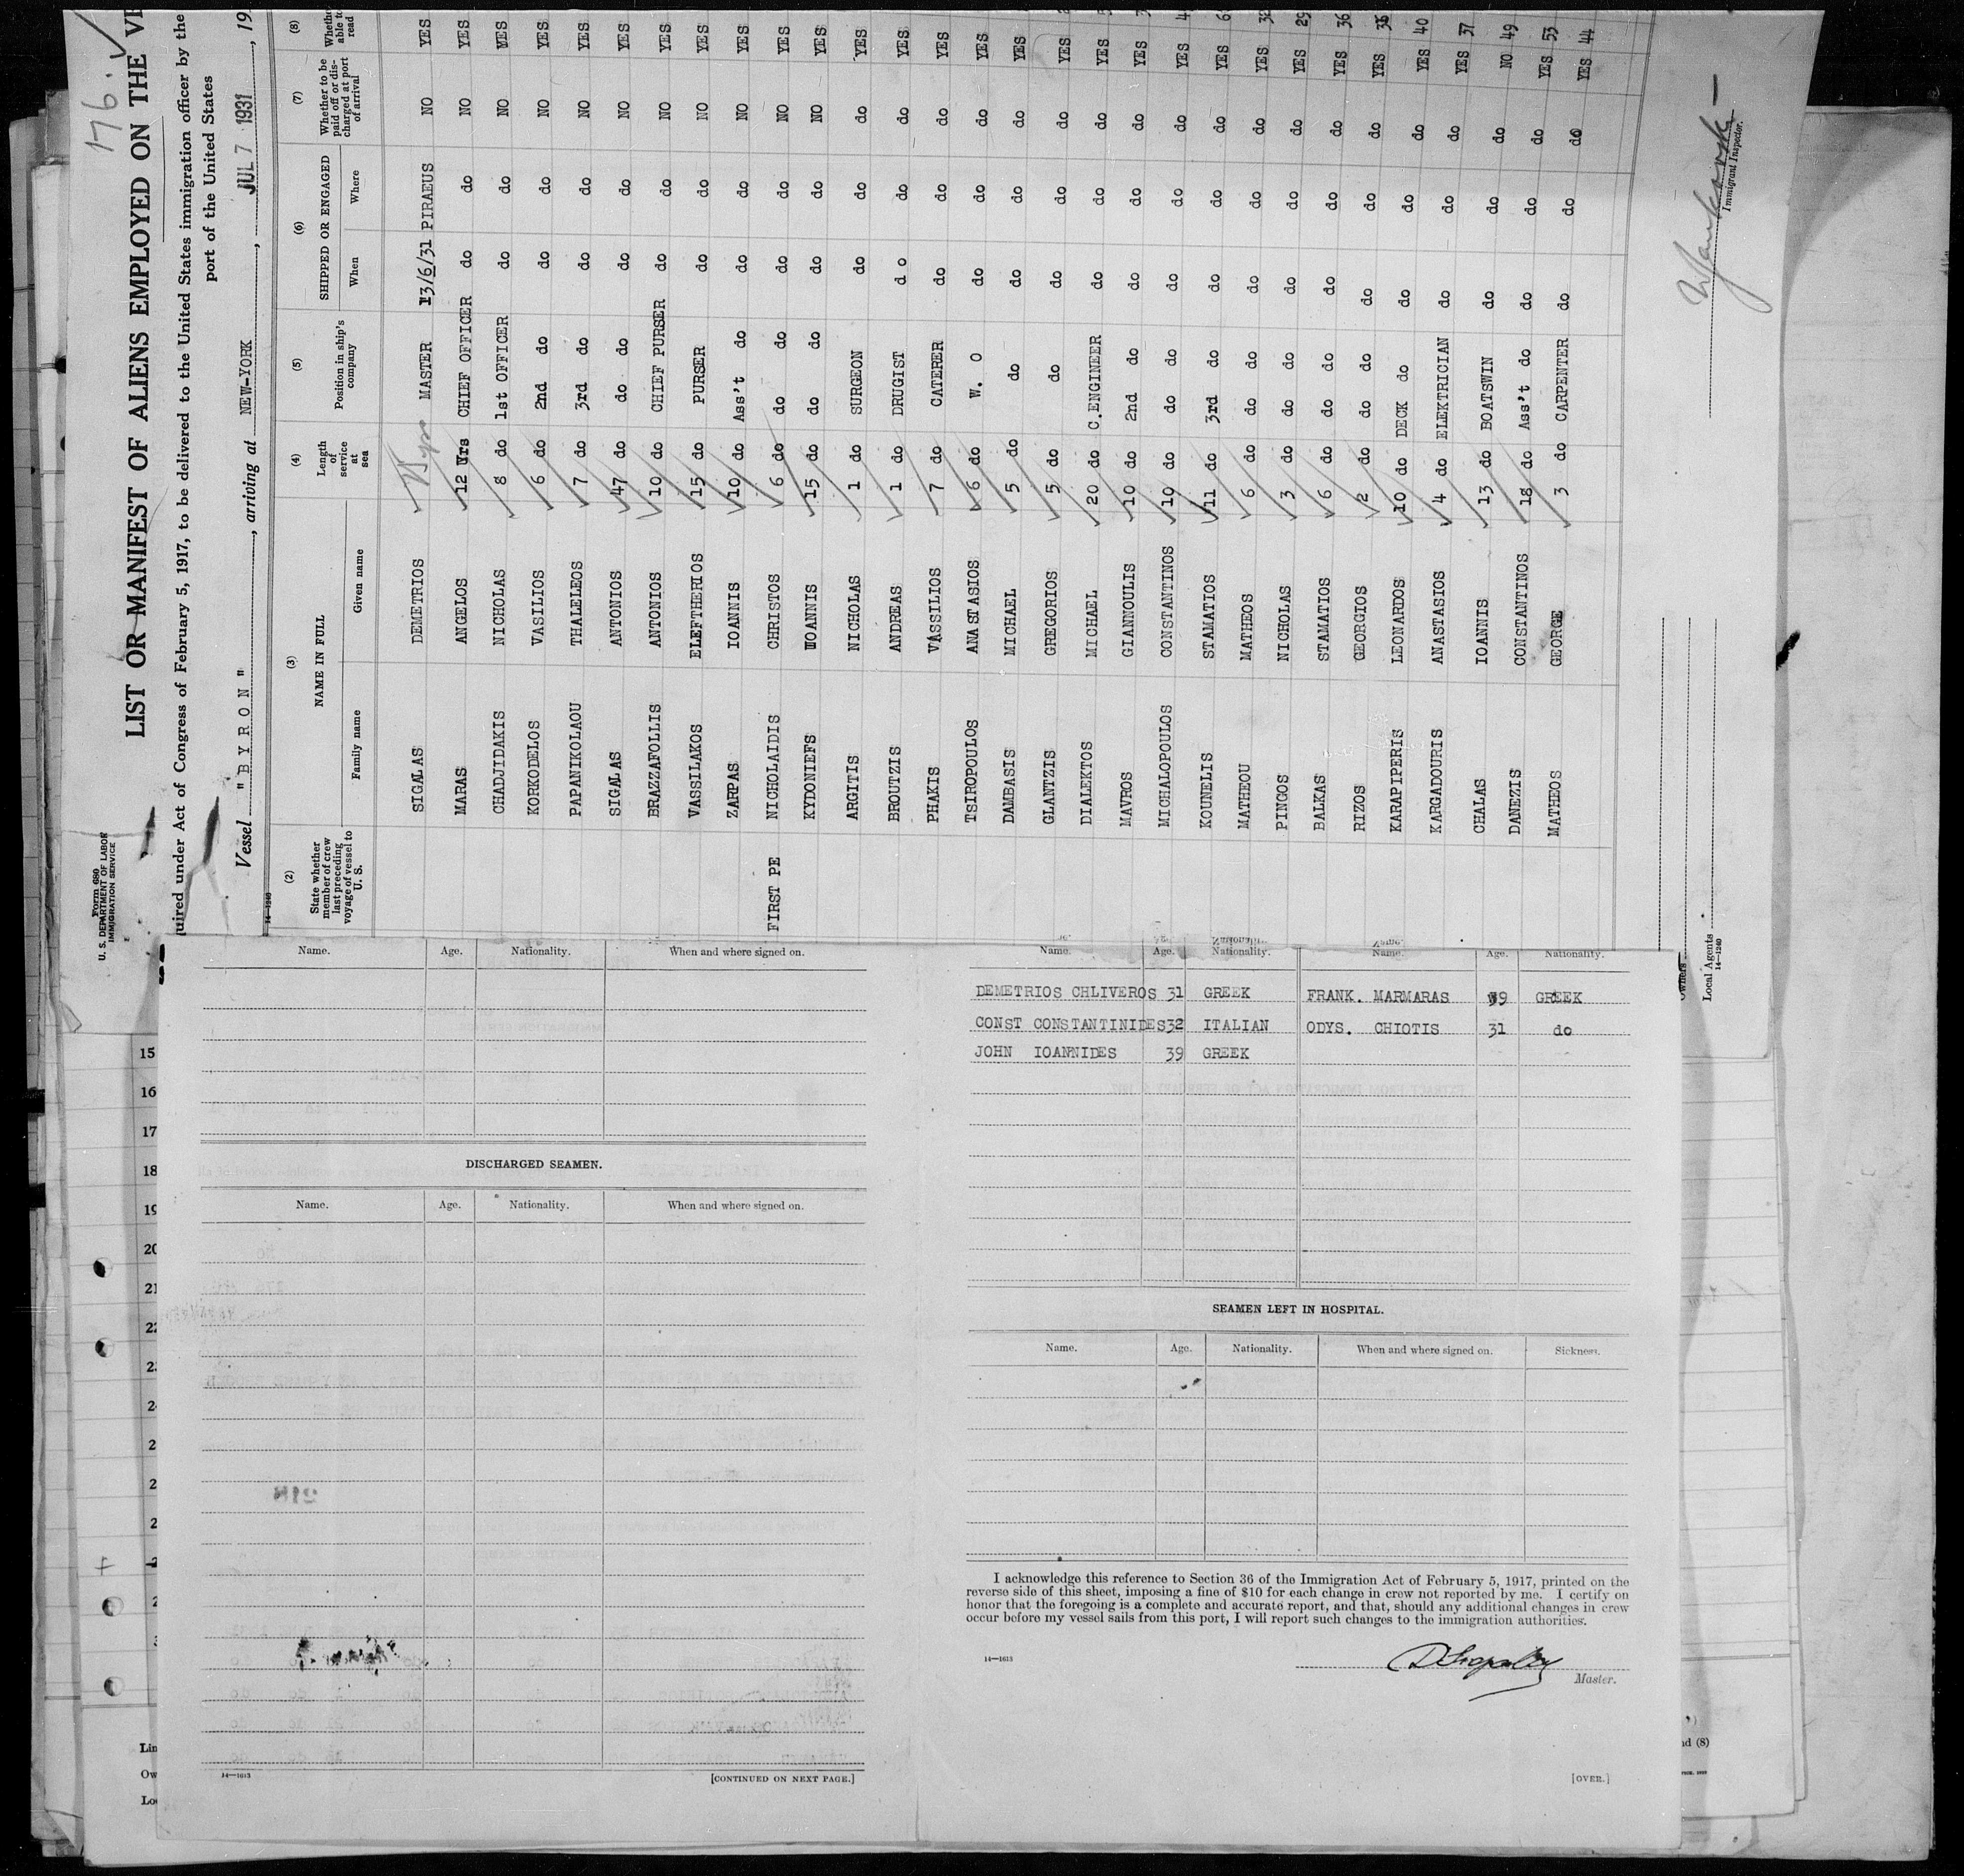 176 ✓
Form 680
U. S. DEPARTMENT OF LABOR
IMMIGRATION SERVICE
LIST OR MANIFEST OF ALIENS EMPLOYED ON THE
uired under Act of Congress of February 5, 1917, to be delivered to the United States immigration officer by the
port of the United States
Vessel "BYRON", arriving at NEW-YORK, JUL 7 1931, 19
14—1240
(2) (3) (4) (5) (6) (7) (8)
State whether member of crew last preceding voyage of vessel to U. S. NAME IN FULL Length of service at sea Position in ship's company SHIPPED OR ENGAGED Whether to be paid off or discharged at port of arrival Whether able to read
Family name Given name When Where
SIGALAS DEMETRIOS MASTER 13/6/31 PIRAEUS NO YES
MARAS ANGELOS 12 Yrs CHIEF OFFICER do do NO YES
CHADJIDAKIS NICHOLAS 8 do 1st OFFICER do do NO YES
KORKODELOS VASILIOS 6 do 2nd do do do NO YES
PAPANIKOLAOU THALELEOS 7 do 3rd do do do NO YES
SIGALAS ANTONIOS 47 do do do do do NO YES
BRAZZAFOLLIS ANTONIOS 10 do CHIEF PURSER do do NO YES
VASSILAKOS ELEFTHERIOS 15 do PURSER do do NO YES
ZARPAS IOANNIS 10 do Ass't do do do NO YES
FIRST PE NICHOLAIDIS CHRISTOS 6 do do do do do NO YES
KYDONIEFS IOANNIS 15 do do do do do NO YES
ARGITIS NICHOLAS 1 do SURGEON do do do YES
BROUTZIS ANDREAS 1 do DRUGIST do do do YES
PHAKIS VASSILIOS 7 do CATERER do do do YES
TSIROPOULOS ANASTASIOS 6 do W. O do do do YES
DAMBASIS MICHAEL 5 do do do do do YES
GLANTZIS GREGORIOS 5 do do do do do YES
DIALEKTOS MICHAEL 20 do C.ENGINEER do do do YES
MAVROS GIANNOULIS 10 do 2nd do do do do YES
MICHALOPOULOS CONSTANTINOS 10 do do do do do YES
KOUNELIS STAMATIOS 11 do 3rd do do do do YES
MATHEOU MATHEOS 6 do do do do do do YES 32
PINGOS NICHOLAS 3 do do do do do do YES 29
BALKAS STAMATIOS 6 do do do do do do YES 36
RIZOS GEORGIOS 2 do do do do do do YES
KARAPIPERIS LEONARDOS 10 do DECK do do do do YES 40
KARGADOURIS ANASTASIOS 4 do ELEKTRICIAN do do do YES 37
CHALAS IOANNIS 13 do BOATSWIN do do do NO 49
DANEZIS CONSTANTINOS 18 do Ass't do do do do YES 53
MATHEOS GEORGE 3 do CARPENTER do do do YES 44
Immigrant Inspector.
Owners
Local Agents
14—1240
Name. Age. Nationality. When and where signed on.
DISCHARGED SEAMEN.
Name. Age. Nationality. When and where signed on.
14—1613
[CONTINUED ON NEXT PAGE.]
Name. Age. Nationality. Name. Age. Nationality.
DEMETRIOS CHLIVEROS 31 GREEK FRANK. MARMARAS GREEK
CONST CONSTANTINIDES 32 ITALIAN ODYS. CHIOTIS 31 do
JOHN IOANNIDES 39 GREEK
SEAMEN LEFT IN HOSPITAL.
Name. Age. Nationality. When and where signed on. Sickness.
I acknowledge this reference to Section 36 of the Immigration Act of February 5, 1917, printed on the
reverse side of this sheet, imposing a fine of $10 for each change in crew not reported by me. I certify on
honor that the foregoing is a complete and accurate report, and that, should any additional changes in crew
occur before my vessel sails from this port, I will report such changes to the immigration authorities.
14—1613
Master.
[OVER.]
15
16
17
18
19
20
21
22
nd (8)